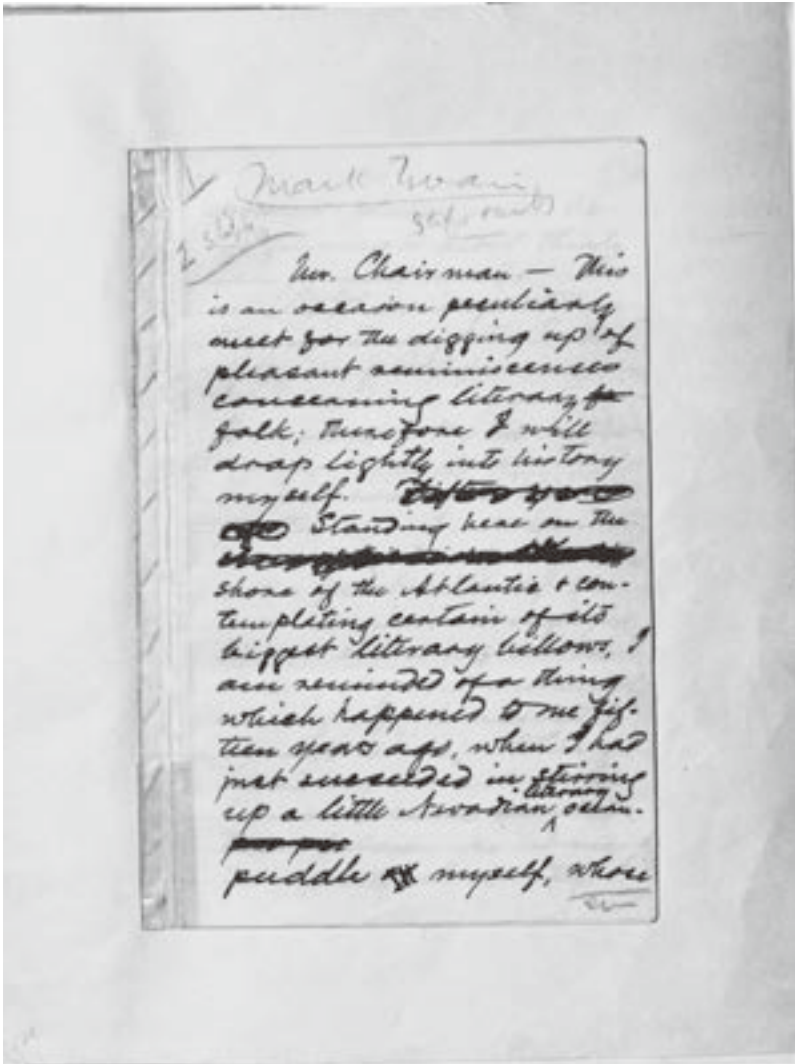 Mark Twain
Mr. Chairman — This
is an occasion peculiarly
meet for the digging up of
pleasant reminiscences
concerning literary
folk; therefore I will
drop lightly into history
myself.
Standing here on the
shore of the Atlantic & con-
templating certain of its
biggest literary billows, I
am reminded of a thing
which happened to me fif-
teen years ago, when I had
just succeeded in stirring
up a little Nevadian literary ocean-
puddle myself, whose